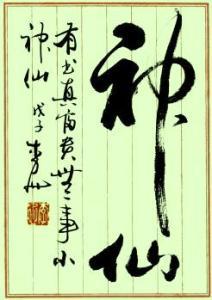 神仙
有书真富贵无事小
神仙 戊子 李